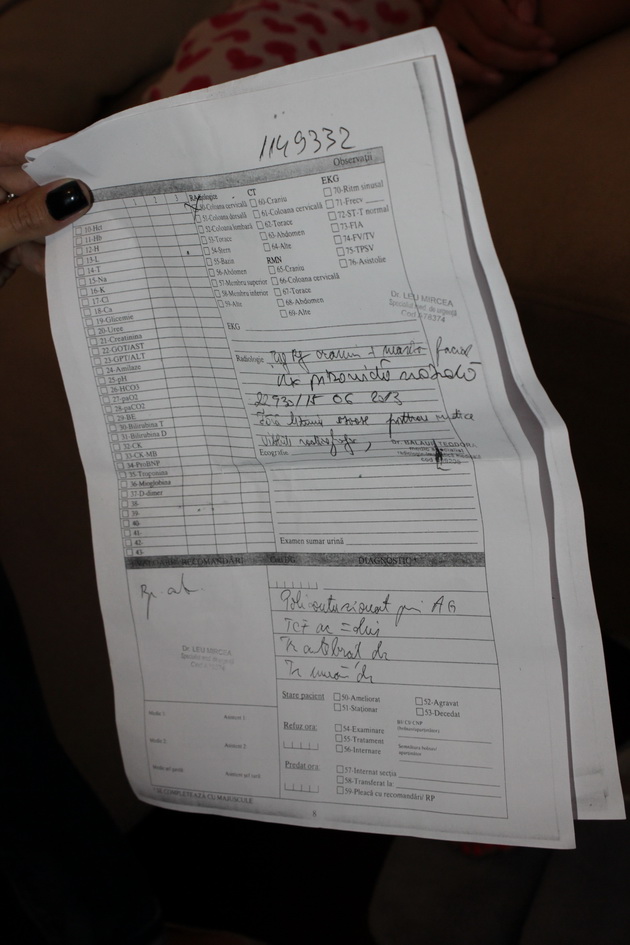 1149332
Observații
1 2 3
10-Hct
11-Hb
12-H
13-L
14-T
15-Na
16-K
17-Cl
18-Ca
19-Glicemie
20-Uree
21-Creatinina
22-GOT/AST
23-GPT/ALT
24-Amilaze
25-pH
26-HCO3
27-paO2
28-paCO2
29-BE
30-Bilirubina T
31-Bilirubina D
32-CK
33-CK-MB
34-ProBNP
35-Troponina
36-Mioglobina
37-D-dimer
38-
39-
40-
41-
42-
43-
Radiologie
50-Coloana cervicală
51-Coloana dorsală
52-Coloana lombară
53-Torace
54-Stern
55-Bazin
56-Abdomen
57-Membru superior
58-Membru inferior
59-Alte
CT
60-Craniu
61-Coloana cervicală
62-Torace
63-Abdomen
64-Alte
RMN
65-Craniu
66-Coloana cervicală
67-Torace
68-Abdomen
69-Alte
EKG
70-Ritm sinusal
71-Frecv
72-ST-T normal
73-FIA
74-FV/TV
75-TPSV
76-Asistolie
Dr. LEU MIRCEA
EKG
Radiologie craniu + masiv facial
piramidă nazală
22930/15 06 2013
Fără leziuni osoase
vizibile radiografic,
Ecografie
Examen sumar urină
DIAGNOSTIC
Policontuzionat prin AG
TCF ac =
antebrat dr
dr
Dr. LEU MIRCEA
Stare pacient
50-Ameliorat
51-Staționar
52-Agravat
53-Decedat
Refuz ora:
54-Examinare
55-Tratament
56-Internare
BI/CI/CNP
Predat ora:
57-Internat secția
58-Transferat la
59-Pleacă cu recomandări/ RP
Medic 1
Asistent 1
Medic 2
Asistent 2
SE COMPLETEAZĂ CU MAJUSCULE
8